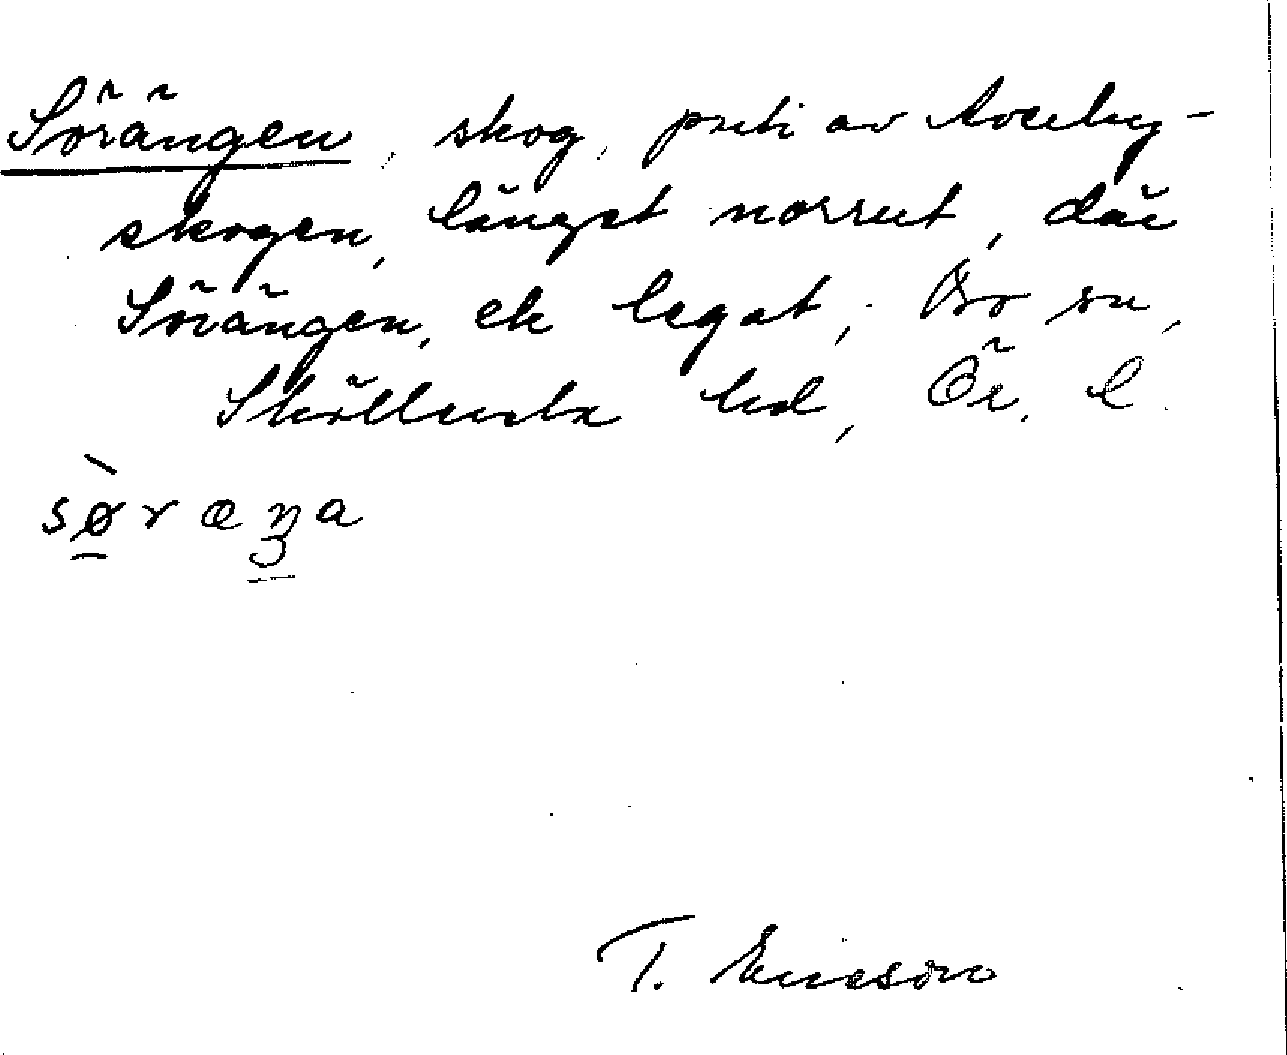 Sörängen, skog, parti av Avelby-
skogen, längst norrut, där
Sörängen, ek legat; Bro sn,
Skölluda hd, Ör. l.
søræŋa
T. Ericson